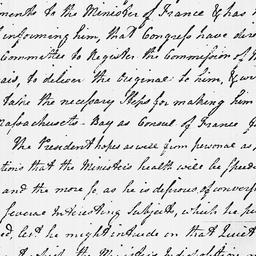 ments to the Minister of France & has
informing him, that Congress have dire
Committee to Register the Commission of
said, to deliver the Original to him, &
take the necessary Steps for making him
Massachusetts Bay as Consul of France
The President hopes as well from personal as,
tions that the Ministers health will be speed
and the more so as he is desirous, of convers
several Interesting Subjects, which he
ed, lest he might intrude on that Quiet
which the Ministers Indisposition